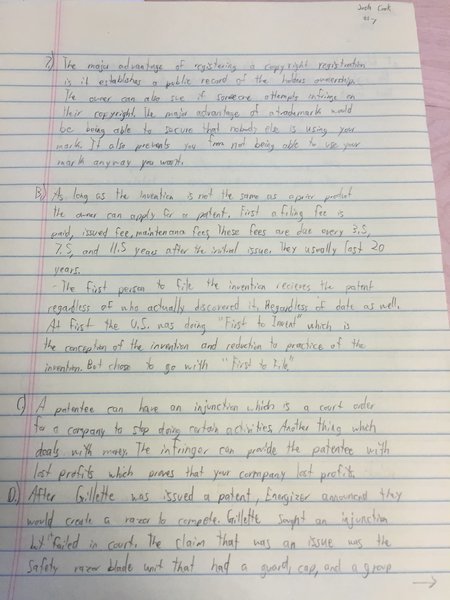 Josh Cook
#7
?) The major advantage of registering a copyright registration
is it establishes a public record of the holders ownership.
The owner can also sue if someone attempts infringe on
their copyright. The major advantage of a trademark would
be being able to secure that nobody else is using your
mark. It also prevents you from not being able to use your
mark anyway you want.
B.) As long as the invention is not the same as a prior product
the owner can apply for a patent. First a filing fee is
paid, issued fee, maintenana fees, These fees are due every 3.5,
7.5, and 11.5 years after the initial issue. They usually last 20
years.
- The first person to file the invention recieves the patent
regardless of who actually discovered it. Regardless of date as well.
At first the U.S. was doing "First to Invent" which is
the conception of the invention and reduction to practice of the
invention. But chose to go with "First to File."
C.) A patentee can have an injunction which is a court order
for a company to stop doing certain activities. Another thing which
deals with money. The infringer can provide the patentee with
lost profits which proves that your company lost profits.
D.) After Gillette was issued a patent, Energizer announced they
would create a razor to compete. Gillette sought an injunction
but failed in court. The claim that was an issue was the
safety razor blade unit that had a guard, cap, and a group
→